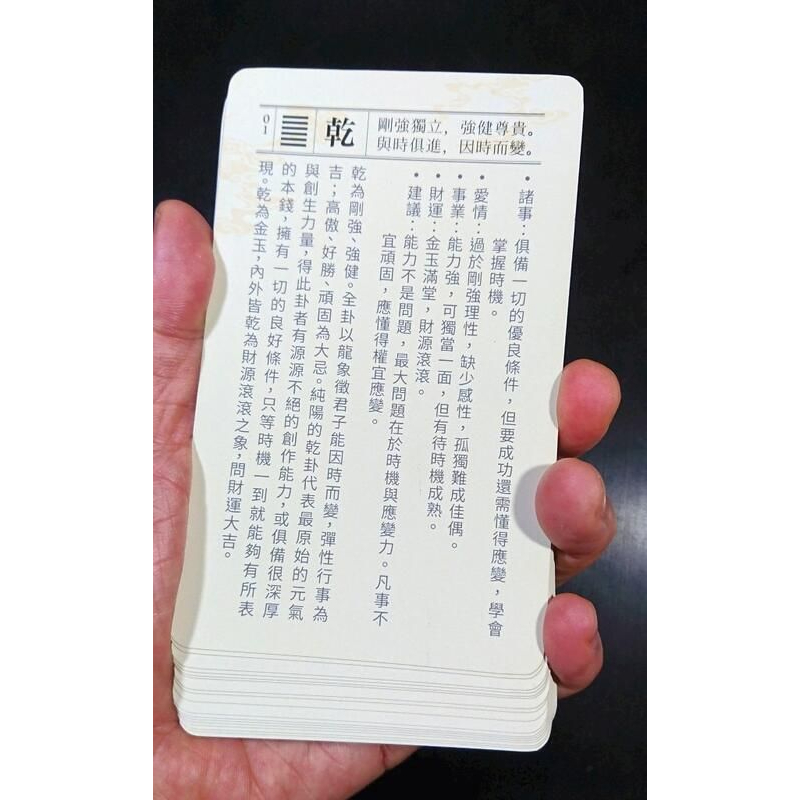 01
乾
剛強獨立，強健尊貴。
與時俱進，因時而變。
•諸事：俱備一切的優良條件，但要成功還需懂得應變，學會
掌握時機。
•愛情：過於剛強理性，缺少感性，孤獨難成佳偶。
•事業：能力強，可獨當一面，但有待時機成熟。
•財運：金玉滿堂，財源滾滾。
•建議：能力不是問題，最大問題在於時機與應變力。凡事不
宜頑固，應懂得權宜應變。
乾為剛強、強健。全卦以龍象徵君子能因時而變，彈性行事為
吉；高傲、好勝、頑固為大忌。純陽的乾卦代表最原始的元氣
與創生力量，得此卦者有源源不絕的創作能力，或俱備很深厚
的本錢，擁有一切的良好條件，只等時機一到就能夠有所表
現。乾為金玉，內外皆乾為財源滾滾之象，問財運大吉。